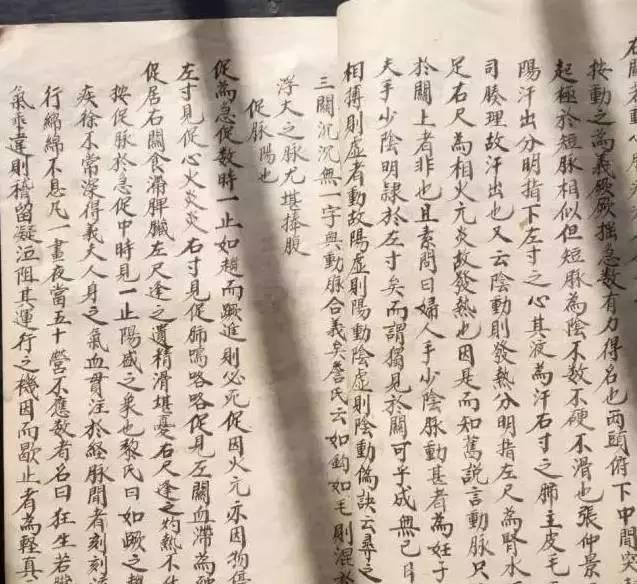 關若動心
按動之為義厥厥搖急數有力得名也兩頭俯下中間突
起極於短脉相似但短脉為陰不数不硬不滑也張仲景
陽汗出分明指下左寸之心其液為汗右寸之肺主皮毛
司腠理故汗出也又云陰動則發熱分明指左尺為腎水
足右尺為相火元炎故發熱也因是而知舊說言動脉只
於關上者非也且素問曰婦人手少陰脉動甚者為妊子
夫手少陰明隷於左寸矣而謂獨見於關可乎成無己曰
相搏則虛者動故陽虛則陽動陰虛則陰動偽訣云尋之
三關沉沉無一字與動脉合義矣詹氏云如鈎如毛則混於
浮大之脉尤堪捧腹
促脉陽也
促為急促数時一止如趨而蹶進則必死促因火元亦因物停
左寸見促心火炎炎右寸見促肺鳴咯咯促見左關血滯為
促居右關食滯脾臟左尺逢之遺精滑堪憂右尺逢之灼熱不
按促脉於急促中時見一止陽盛之象也黎氏曰如蹶之趨
疾徐不常深得義夫人身之氣血貫注於経脉間者刻刻流
行綿綿不息凡一晝夜當五十營不應数者名曰狂生若臟
氣乖違則稽留凝泣阻其運行之機因而歇止者為輕真